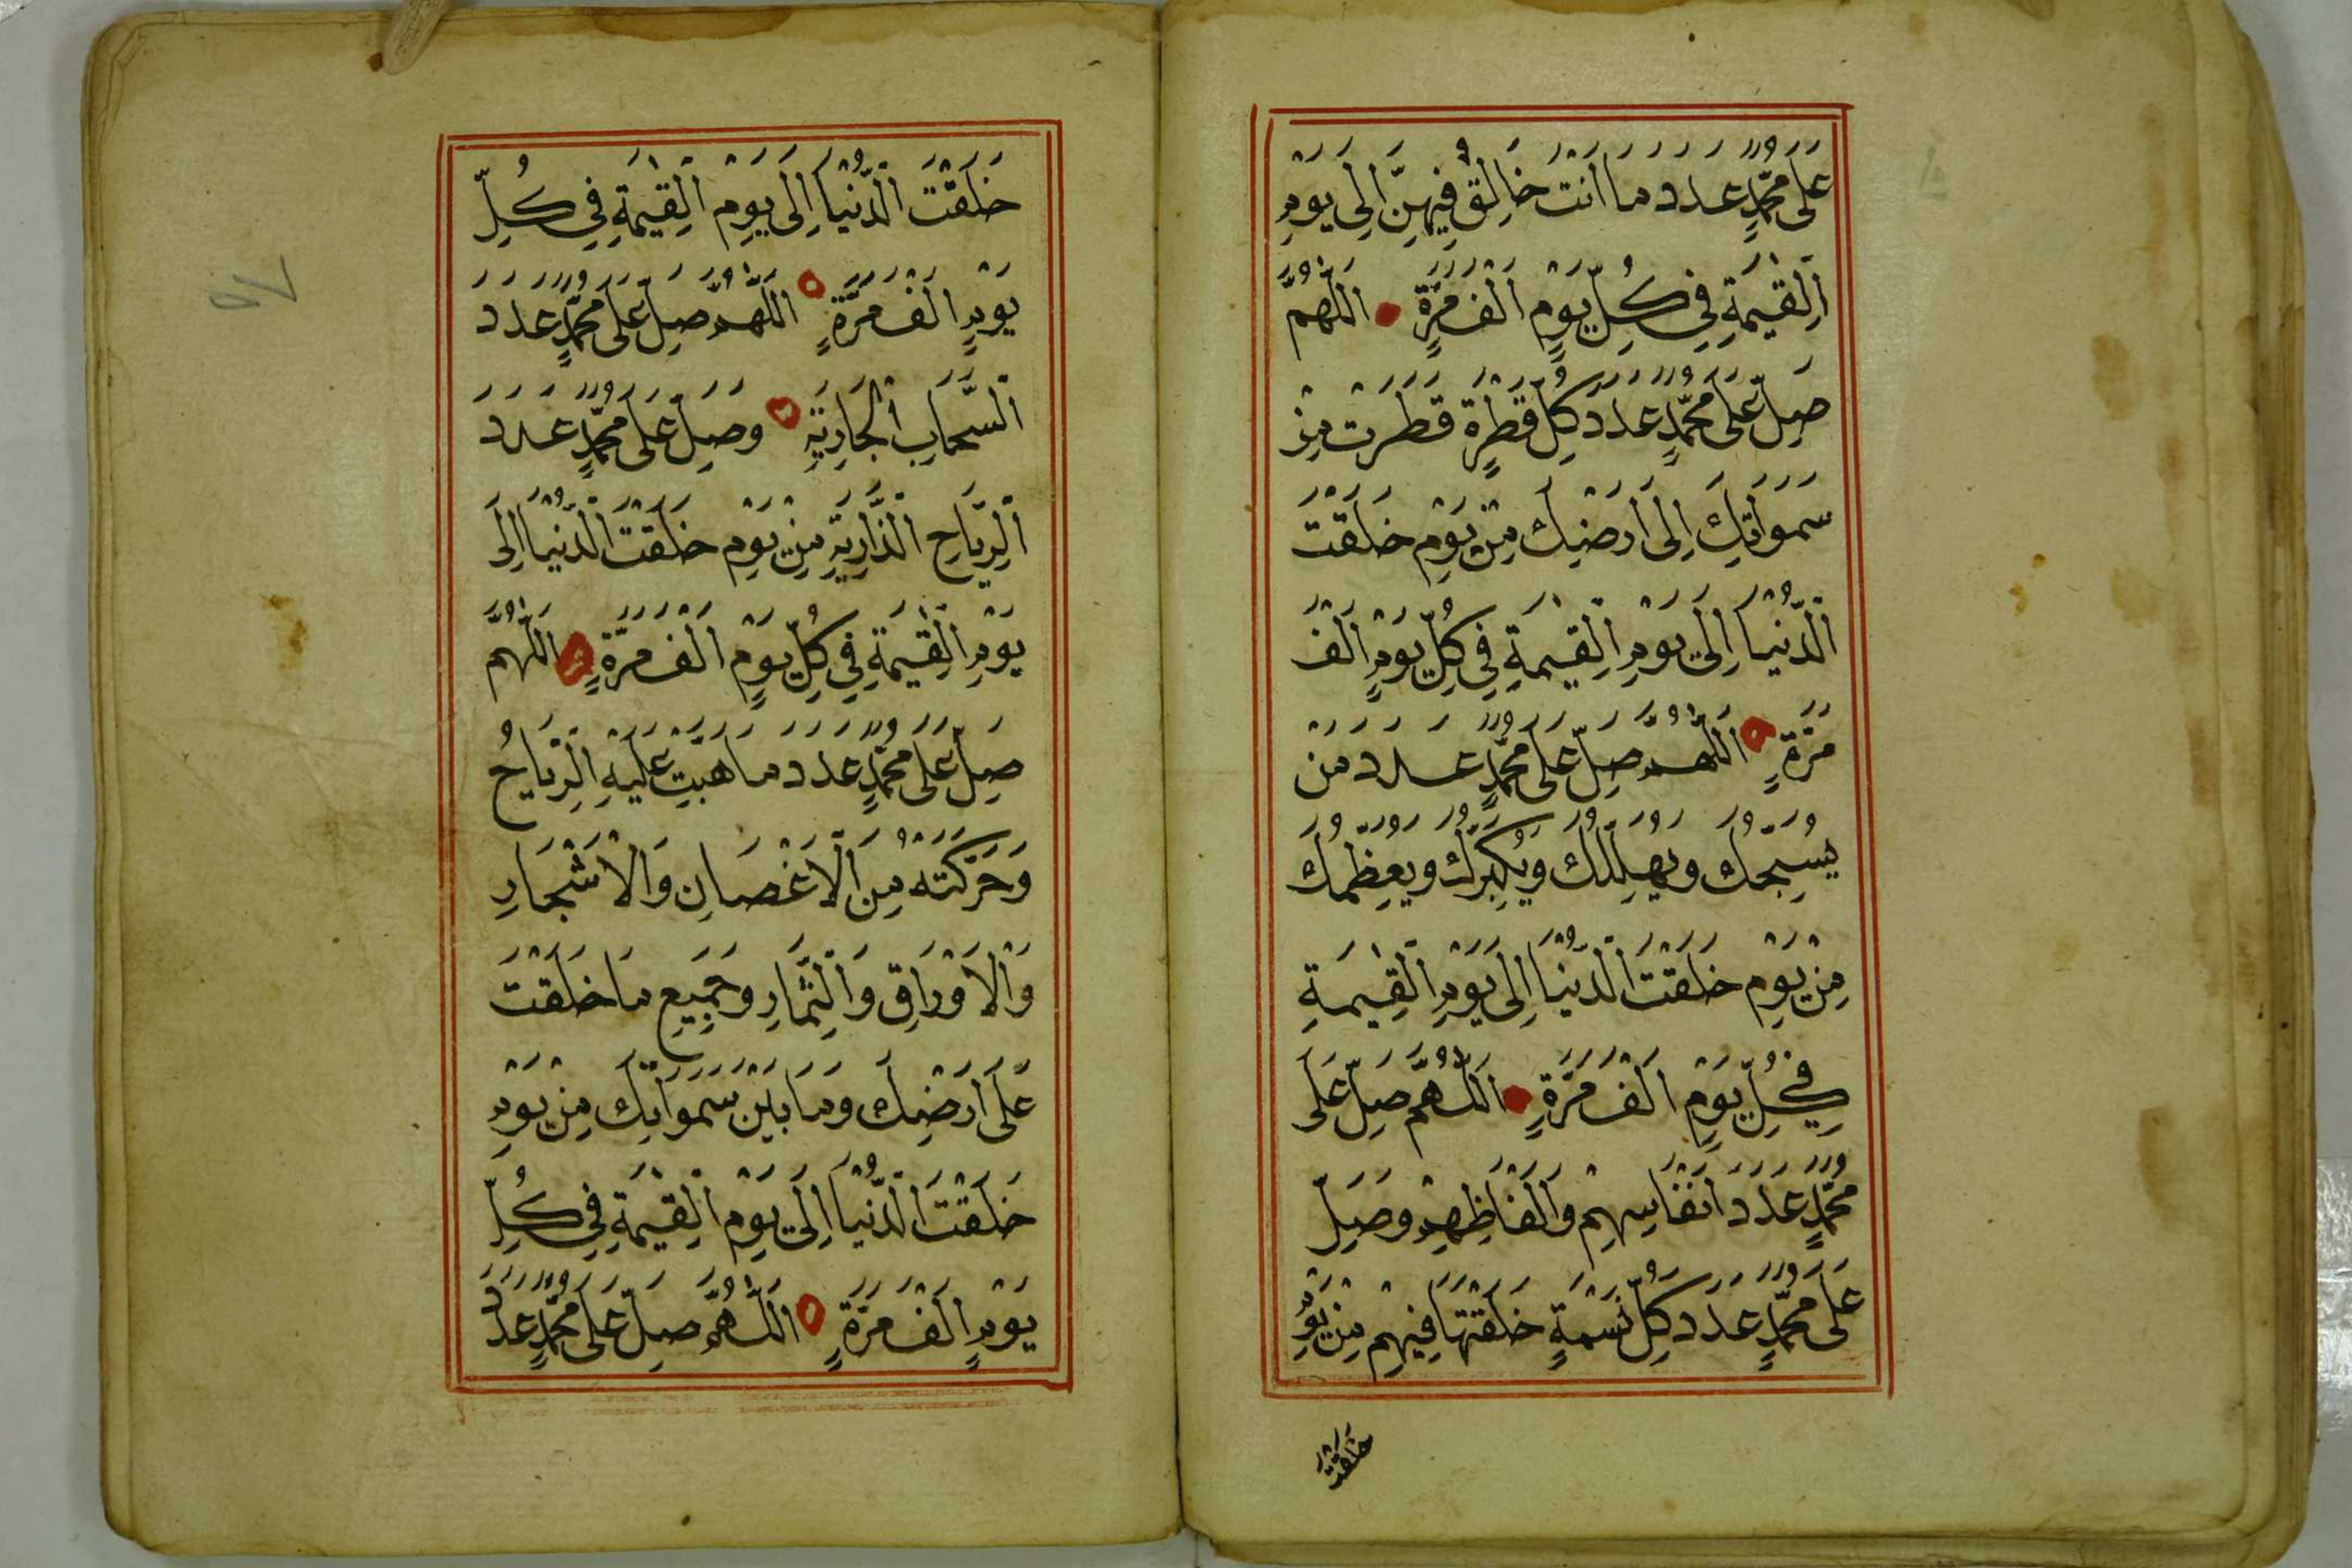 عَلَى مُحَمَّدٍ عَدَدَ مَا اَنْتَ خَالِقٌ فِيهِنَّ اِلَى يَوْمِ
اَلْقِيٰمَةِ فِي كُلِّ يَوْمٍ اَلْفَ مَرَّةٍ اَللّٰهُمَّ
صَلِّ عَلَى مُحَمَّدٍ عَدَدَ كُلِّ قَطْرَةٍ قَطَرَتْ مِنْ
سَمَوَاتِكَ اِلَى اَرْضِكَ مِنْ يَوْمِ خَلَقْتَ
اَلدُّنْيَا اِلَى يَوْمِ الْقِيٰمَةِ فِي كُلِّ يَوْمٍ اَلْفَ
مَرَّةٍ اَللّٰهُمَّ صَلِّ عَلَى مُحَمَّدٍ عَدَدَ مَنْ
يُسَبِّحُكَ وَيُهَلِّلُكَ وَيُكَبِّرُكَ وَيُعَظِّمُكَ
مِنْ يَوْمِ خَلَقْتَ الدُّنْيَا اِلَى يَوْمِ الْقِيٰمَةِ
فِي كُلِّ يَوْمٍ اَلْفَ مَرَّةٍ اَللّٰهُمَّ صَلِّ عَلَى
مُحَمَّدٍ عَدَدَ اَنْفَاسِهِمْ وَاَلْفَاظِهِمْ وَصَلِّ
عَلَى مُحَمَّدٍ عَدَدَ كُلِّ نَسَمَةٍ خَلَقْتَهَا فِيهِمْ مِنْ يَوْمِ
خَلَقْتَ
خَلَقْتَ الدُّنْيَا اِلَى يَوْمِ الْقِيٰمَةِ فِي كُلِّ
يَوْمٍ اَلْفَ مَرَّةٍ اَللّٰهُمَّ صَلِّ عَلَى مُحَمَّدٍ عَدَدَ
اَلسَّحَابِ الْجَارِيَةِ وَصَلِّ عَلَى مُحَمَّدٍ عَدَدَ
اَلرِّيَاحِ الذَّارِيَةِ مِنْ يَوْمِ خَلَقْتَ الدُّنْيَا اِلَى
يَوْمِ الْقِيٰمَةِ فِي كُلِّ يَوْمٍ اَلْفَ مَرَّةٍ اَللّٰهُمَّ
صَلِّ عَلَى مُحَمَّدٍ عَدَدَ مَا هَبَّتْ عَلَيْهِ الرِّيَاحُ
وَحَرَّكَتْهُ مِنَ الْاَغْصَانِ وَالْاَشْجَارِ
وَالْاَوْرَاقِ وَالثِّمَارِ وَجَمِيعِ مَا خَلَقْتَ
عَلَى اَرْضِكَ وَمَا بَيْنَ سَمَوَاتِكَ مِنْ يَوْمِ
خَلَقْتَ الدُّنْيَا اِلَى يَوْمِ الْقِيٰمَةِ فِي كُلِّ
يَوْمٍ اَلْفَ مَرَّةٍ اَللّٰهُمَّ صَلِّ عَلَى مُحَمَّدٍ عَدَدَ